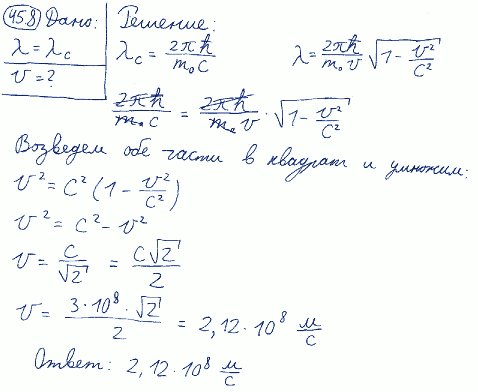 45.8 Дано: Решение:
λ = λ_c λ_c = 2πħ / m₀c λ = 2πħ / m₀v √(1 - v²/c²)
v = ?
2πħ / m₀c = 2πħ / m₀v · √(1 - v²/c²)
Возведем обе части в квадрат и умножим:
v² = c² (1 - v²/c²)
v² = c² - v²
v = c/√2 = c√2/2
v = 3·10⁸·√2 / 2 = 2,12·10⁸ м/с
Ответ: 2,12·10⁸ м/с